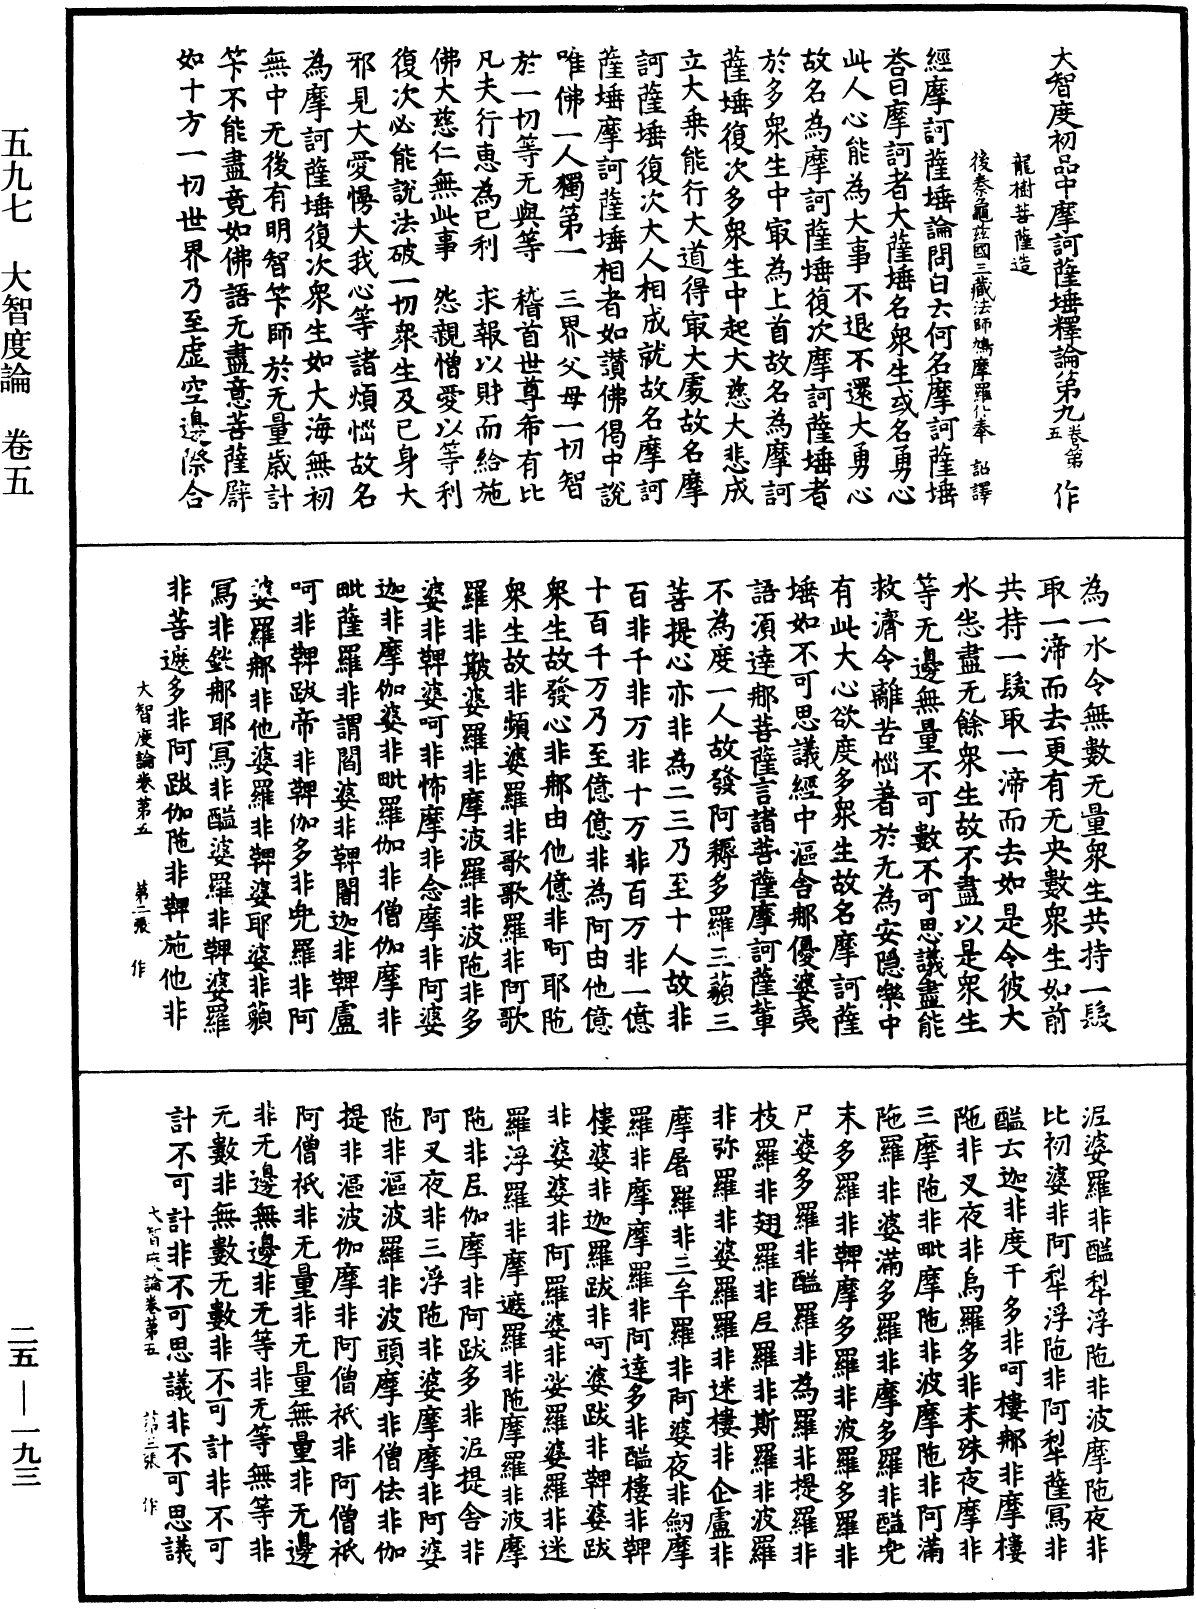 五九七　大智度論　卷五
二五—一九三
大智度初品中摩訶薩埵釋論第九卷第五　作
龍樹菩薩造
後秦龜茲國三藏法師鳩摩羅什奉　詔譯
經摩訶薩埵論問曰云何名摩訶薩埵
荅曰摩訶者大薩埵名衆生或名勇心
此人心能為大事不退不還大勇心
故名為摩訶薩埵復次摩訶薩埵者
於多衆生中㝡為上首故名為摩訶
薩埵復次多衆生中起大慈大悲成
立大乗能行大道得㝡大處故名摩
訶薩埵復次大人相成就故名摩訶
薩埵摩訶薩埵相者如讃佛偈中說
唯佛一人獨第一　三界父母一切智
於一切等无與等　稽首世尊希有比
凡夫行惠為已利　求報以財而給施
佛大慈仁無此事　怨親憎愛以等利
復次必能說法破一切衆生及已身大
邪見大愛慢大我心等諸煩惱故名
為摩訶薩埵復次衆生如大海無初
無中无後有明智筭師於无量歲計
筭不能盡竟如佛語无盡意菩薩譬
如十方一切世界乃至虛空邊際合
為一水令無數无量衆生共持一髮
取一渧而去更有无央數衆生如前
共持一髮取一渧而去如是令彼大
水悉盡无餘衆生故不盡以是衆生
等无邊無量不可數不可思議盡能
救濟令離苦惱著於无為安隠樂中
有此大心欲度多衆生故名摩訶薩
埵如不可思議經中漚舍那優婆夷
語湏達那菩薩言諸菩薩摩訶薩軰
不為度一人故發阿耨多羅三藐三
菩提心亦非為二三乃至十人故非
百非千非万非十万非百万非一億
十百千万乃至億億非為阿由他億
衆生故發心非那由他億非阿耶陁
衆生故非頻婆羅非歌歌羅非阿歌
羅非簸婆羅非摩波羅非波陁非多
婆非鞞婆呵非怖摩非念摩非阿婆
迦非摩伽婆非毗羅伽非僧伽摩非
毗薩羅非謂閻婆非鞞闍迦非鞞盧
呵非鞞跋帝非鞞伽多非兠羅非阿
婆羅那非他婆羅非鞞婆耶婆非藐
寫非鈋那耶寫非醯婆羅非鞞婆羅
非菩遮多非阿跋伽陁非鞞施他非
大智度論卷第五　　第二張　作
泥婆羅非醯犁浮陁非波摩陁夜非
比初婆非阿犁浮陁非阿犁薩寫非
醯云迦非度千多非呵樓那非摩樓
陁非叉夜非烏羅多非末殊夜摩非
三摩陁非毗摩陁非波摩陁非阿滿
陁羅非婆滿多羅非摩多羅非醯兠
末多羅非鞞摩多羅非波羅多羅非
尸婆多羅非醯羅非為羅非提羅非
枝羅非翅羅非𡰱羅非斯羅非波羅
非弥羅非婆羅羅非迷樓非企盧非
摩屠羅非三牟羅非阿婆夜非劒摩
羅非摩摩羅非阿達多非醯樓非鞞
樓婆非迦羅跋非呵婆跋非鞞婆跋
非婆婆非阿羅婆非娑羅婆羅非迷
羅浮羅非摩遮羅非陁摩羅非波摩
陁非𡰱伽摩非阿跋多非泥提舍非
阿叉夜非三浮陁非婆摩摩非阿婆
陁非漚波羅非波頭摩非僧佉非伽
提非漚波伽摩非阿僧祇非阿僧祇
阿僧祇非无量非无量無量非无邊
非无邊無邊非无等非无等無等非
无數非無數无數非不可計非不可
計不可計非不可思議非不可思議
大智度論卷第五　　第三張　作